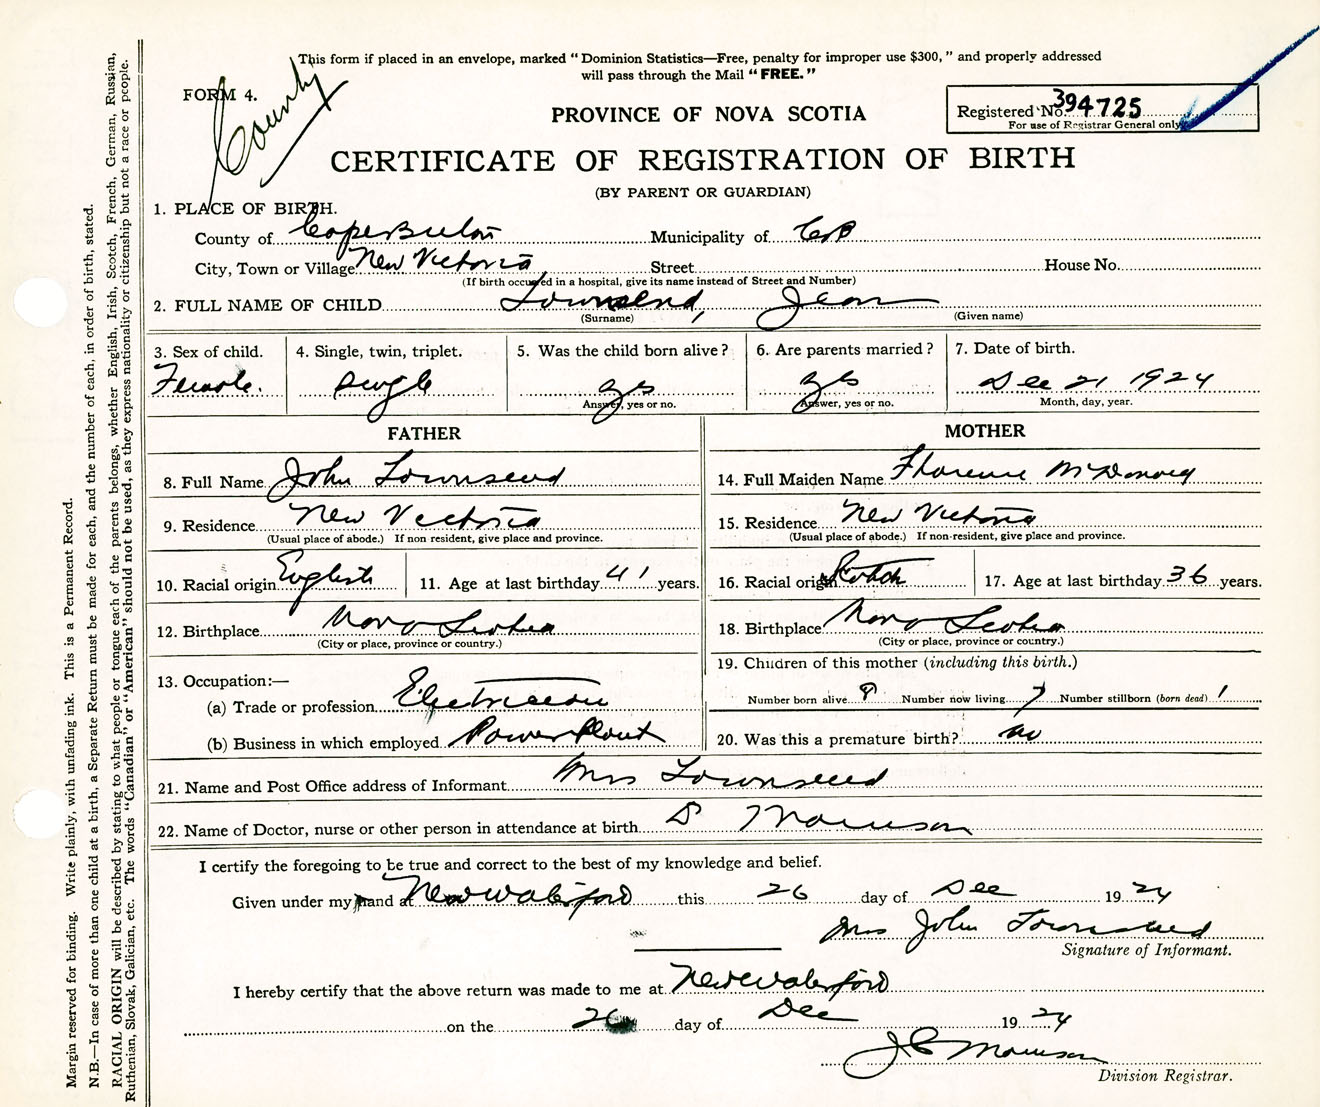 This form if placed in an envelope, marked "Dominion Statistics—Free, penalty for improper use $300," and properly addressed
will pass through the Mail "FREE."
FORM 4.
County
PROVINCE OF NOVA SCOTIA
Registered No. 394725
For use of Registrar General only
CERTIFICATE OF REGISTRATION OF BIRTH
(BY PARENT OR GUARDIAN)
1. PLACE OF BIRTH.
County of Cape Breton Municipality of CB
City, Town or Village New Victoria Street House No.
(If birth occurred in a hospital, give its name instead of Street and Number)
2. FULL NAME OF CHILD Townsend, Jean
(Surname) (Given name)
3. Sex of child. 4. Single, twin, triplet. 5. Was the child born alive? 6. Are parents married? 7. Date of birth.
Female. Single yes yes Dec 21 1924
Answer, yes or no. Answer, yes or no. Month, day, year.
FATHER MOTHER
8. Full Name John Townsend 14. Full Maiden Name Florence McDonald
9. Residence New Victoria 15. Residence New Victoria
(Usual place of abode.) If non resident, give place and province. (Usual place of abode.) If non-resident, give place and province.
10. Racial origin English 11. Age at last birthday 41 years. 16. Racial origin Scotch 17. Age at last birthday 36 years.
12. Birthplace Nova Scotia 18. Birthplace Nova Scotia
(City or place, province or country.) (City or place, province or country.)
13. Occupation:— 19. Children of this mother (including this birth.)
(a) Trade or profession Electrician Number born alive 8 Number now living 7 Number stillborn (born dead) 1
(b) Business in which employed Power Plant 20. Was this a premature birth? no
21. Name and Post Office address of Informant Mrs Townsend
22. Name of Doctor, nurse or other person in attendance at birth Dr Morrison
I certify the foregoing to be true and correct to the best of my knowledge and belief.
Given under my hand at New Waterford this 26 day of Dec 1924
Mrs John Townsend
Signature of Informant.
I hereby certify that the above return was made to me at New Waterford
on the 26 day of Dec 1924
J C Morrison
Division Registrar.
Margin reserved for binding. Write plainly, with unfading ink. This is a Permanent Record.
N.B.—In case of more than one child at a birth, a Separate Return must be made for each, and the number of each, in order of birth, stated.
RACIAL ORIGIN will be described by stating to what people or tongue each of the parents belongs, whether English, Irish, Scotch, French, German, Russian,
Ruthenian, Slovak, Galician, etc. The words "Canadian" or "American" should not be used, as they express nationality or citizenship but not a race or people.